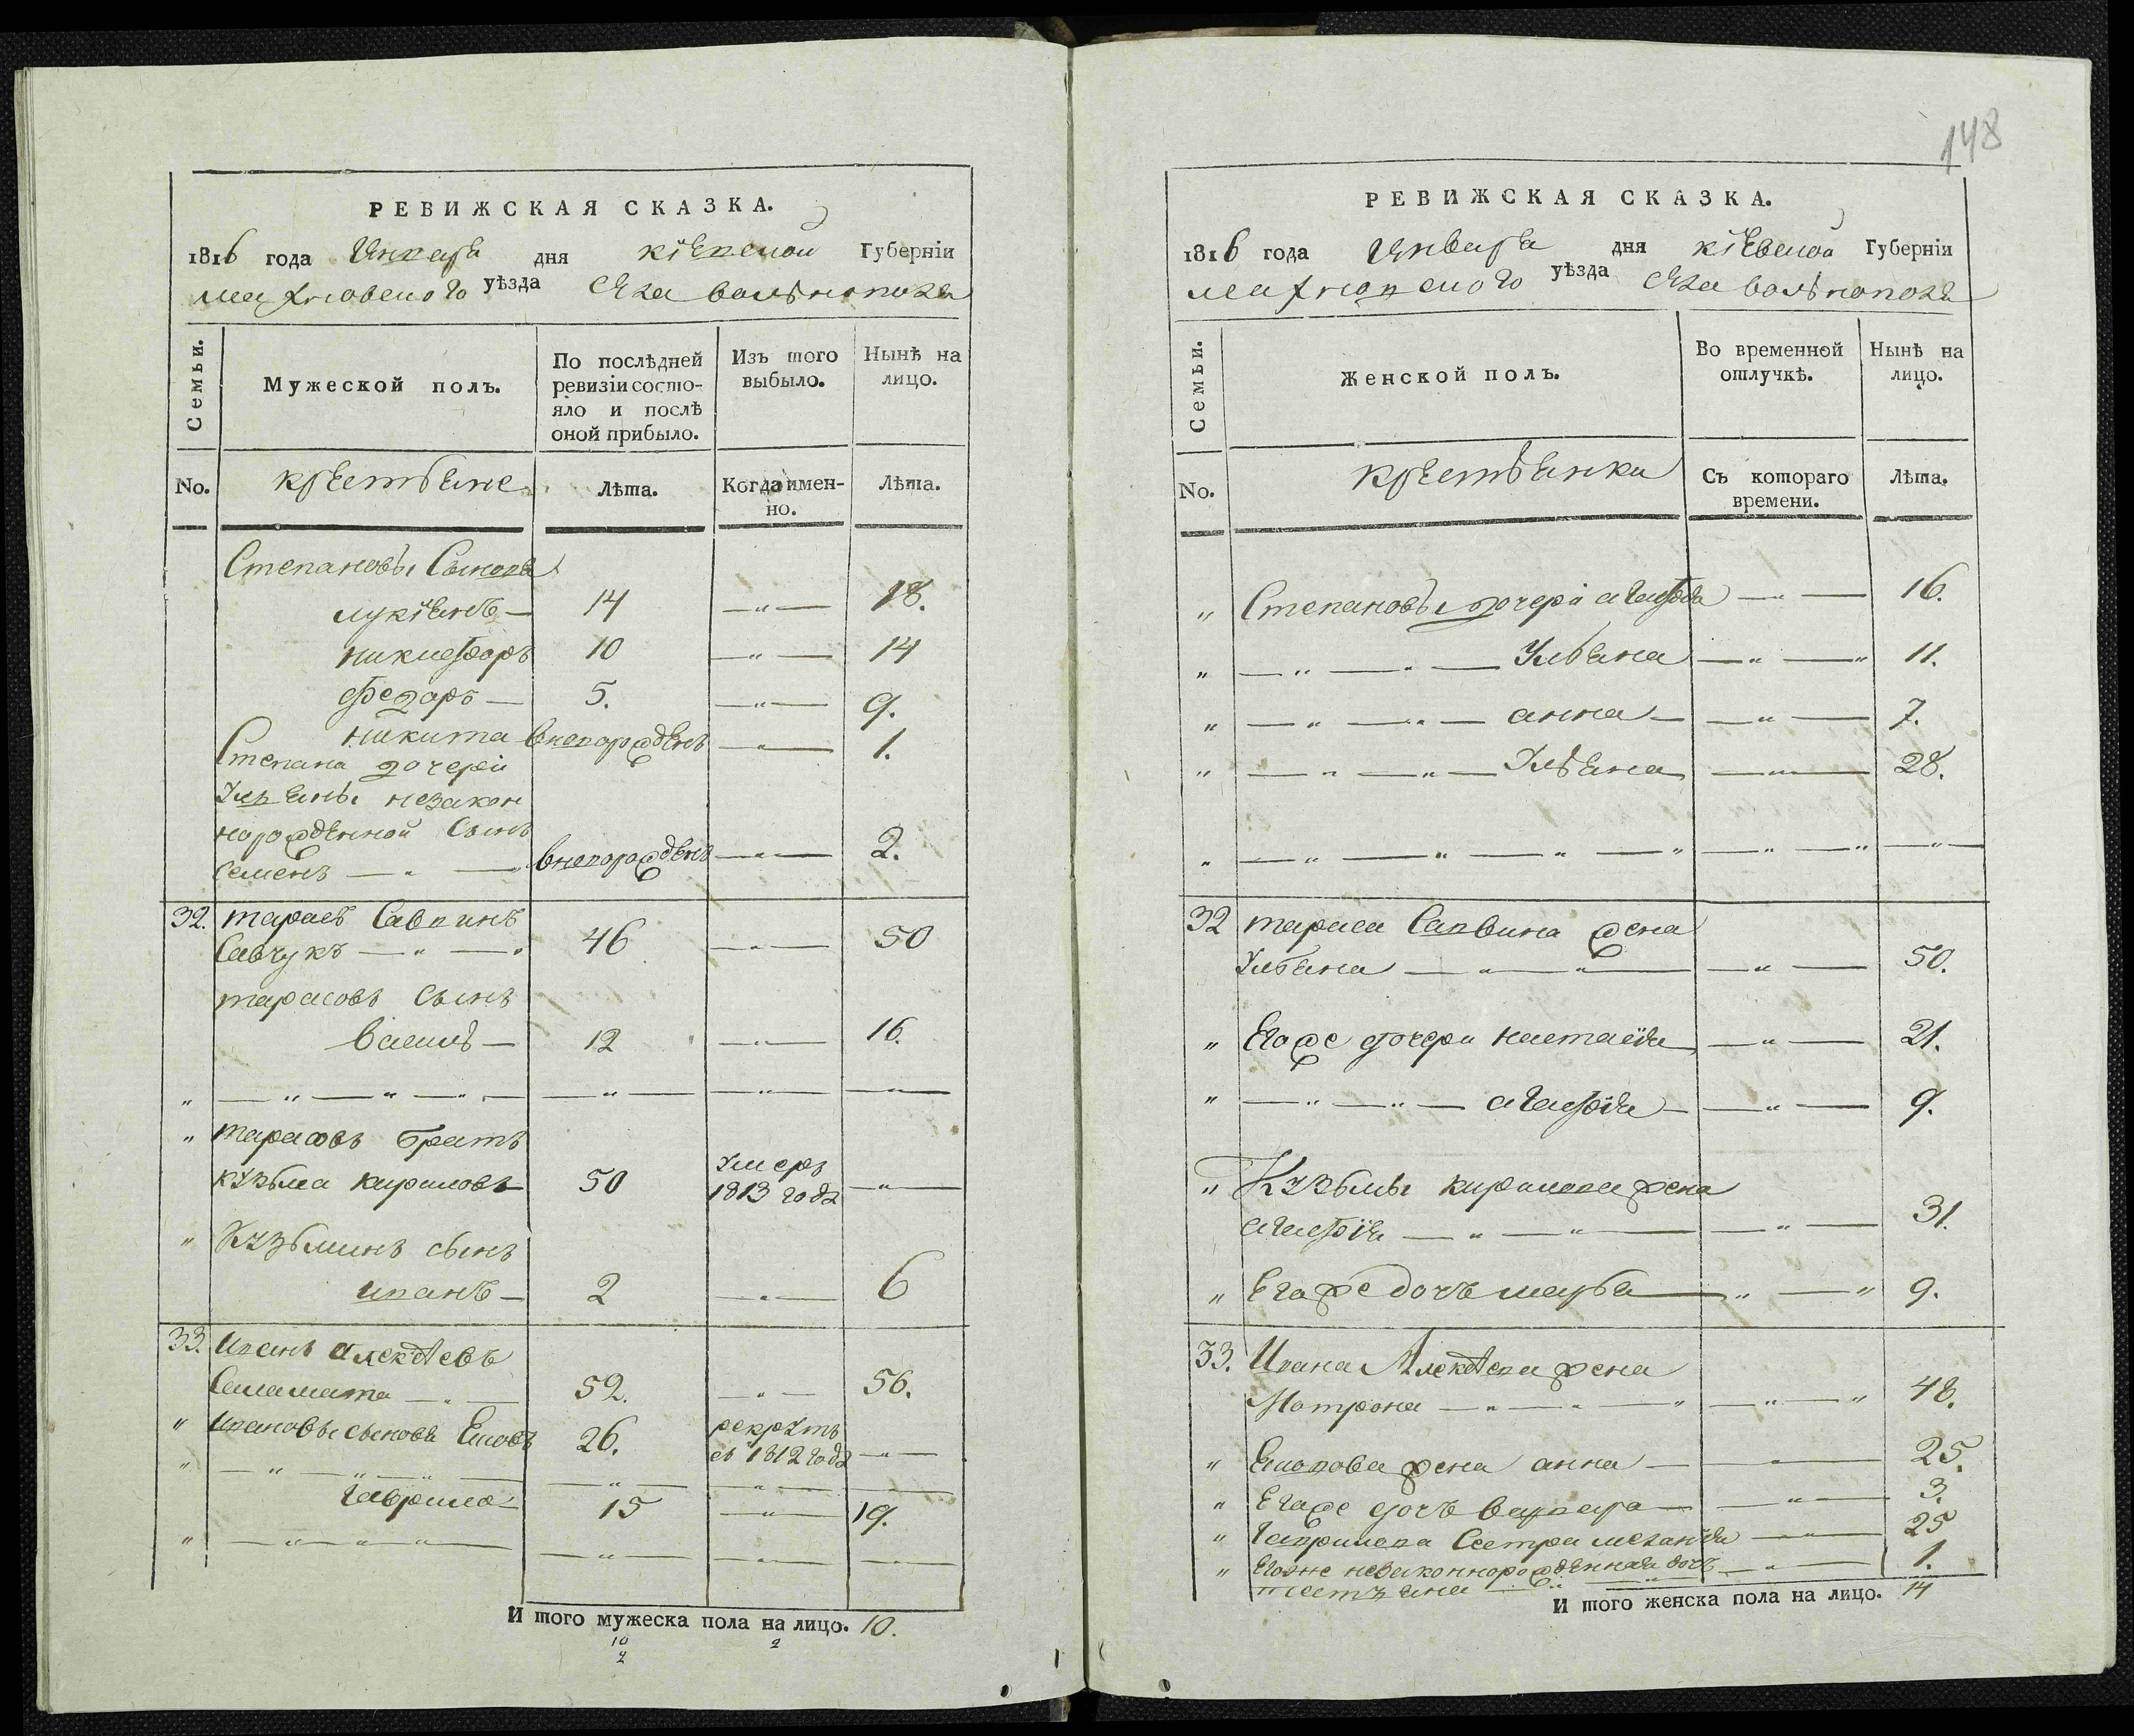 РЕВИЖСКАЯ СКАЗКА.
1816 года Января дня Кіевской Губерніи
Махновского уѣзда
Семьи.
Мужеской полъ.
По послѣдней ревизіи состояло и послѣ оной прибыло.
Изъ того выбыло.
Нынѣ на лицо.
No.
крестьяне
Лѣта.
Когда именно.
Лѣта.
Степановы Сынова
Лукіянъ — 14 —"— 18.
Никифоръ 10 —"— 14
Федоръ — 5. —"— 9.
Никита вноворожденъ —"— 1.
Степана дочери
Ульяны незакон
норожденной Сынъ
Семенъ —"— вноворожденъ —"— 2.
32. Тарасъ Саввинъ
Савчукъ —"— 46 —"— 50
Тарасовъ Сынъ
Василь — 12 —"— 16.
" Тарасовъ братъ
Кузьма Кириловъ 50 Умеръ 1813 года —"—
" Кузьминъ сынъ
Иванъ — 2 —"— 6
33. Иванъ Алексѣевъ
Саламата —"— 52. —"— 56.
" Ивановы сынова 26. рекрутъ съ 1812 года —"—
Гаврило 15 —"— 19.
И того мужеска пола на лицо. 10.
10
2
2
148
РЕВИЖСКАЯ СКАЗКА.
1816 года Января дня Кіевской Губерніи
Махновского уѣзда
Семьи.
Женской полъ.
Во временной отлучкѣ.
Нынѣ на лицо.
No.
крестьянки
Съ котораго времени.
Лѣта.
" Степановы дочери Агафья —"— 16.
" —"—"— Ульяна —"—" 11.
" —"—"— Анна — —"— 7.
" —"—"— Ульяна —"— 28.
32 Тараса Саввина жена
Ульяна —"—"— —"— 50.
" Егоже дочери Настасія —"— 21.
" —"—"— Агафія — —"— 9.
" Кузьмы Кирилова жена
Агафія —"—"— —"— 31.
" Егоже дочь Марья —"—" 9.
33. Ивана Алексѣева жена
Матрона —"—"—" —"—" 48.
" жена Анна — —"— 25.
" Егоже дочь Варвара — —"— 3.
" Гаврилова Сестра Меланія —"— 25
" незаконнорожденная дочь —"— 1.
Татьяна
И того женска пола на лицо. 14